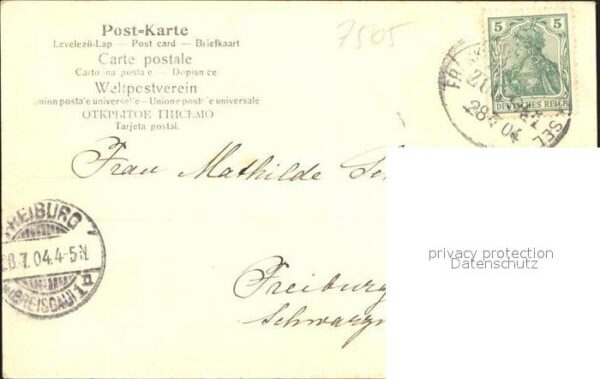 Post-Karte
Levelező-Lap — Post card — Briefkaart
Carte postale
Cartolina postale — Dopisnice
Weltpostverein
Union postale universelle — Unione postale universale
ОТКРЫТОЕ ПИСЬМО
Tarjeta postal.
7505
5 5
DEUTSCHES REICH
ZUG
28 7 04
Frau Mathilde
FREIBURG
28.7.04.4-5N
(BREISGAU) 1d
Freiburg
privacy protection
Datenschutz